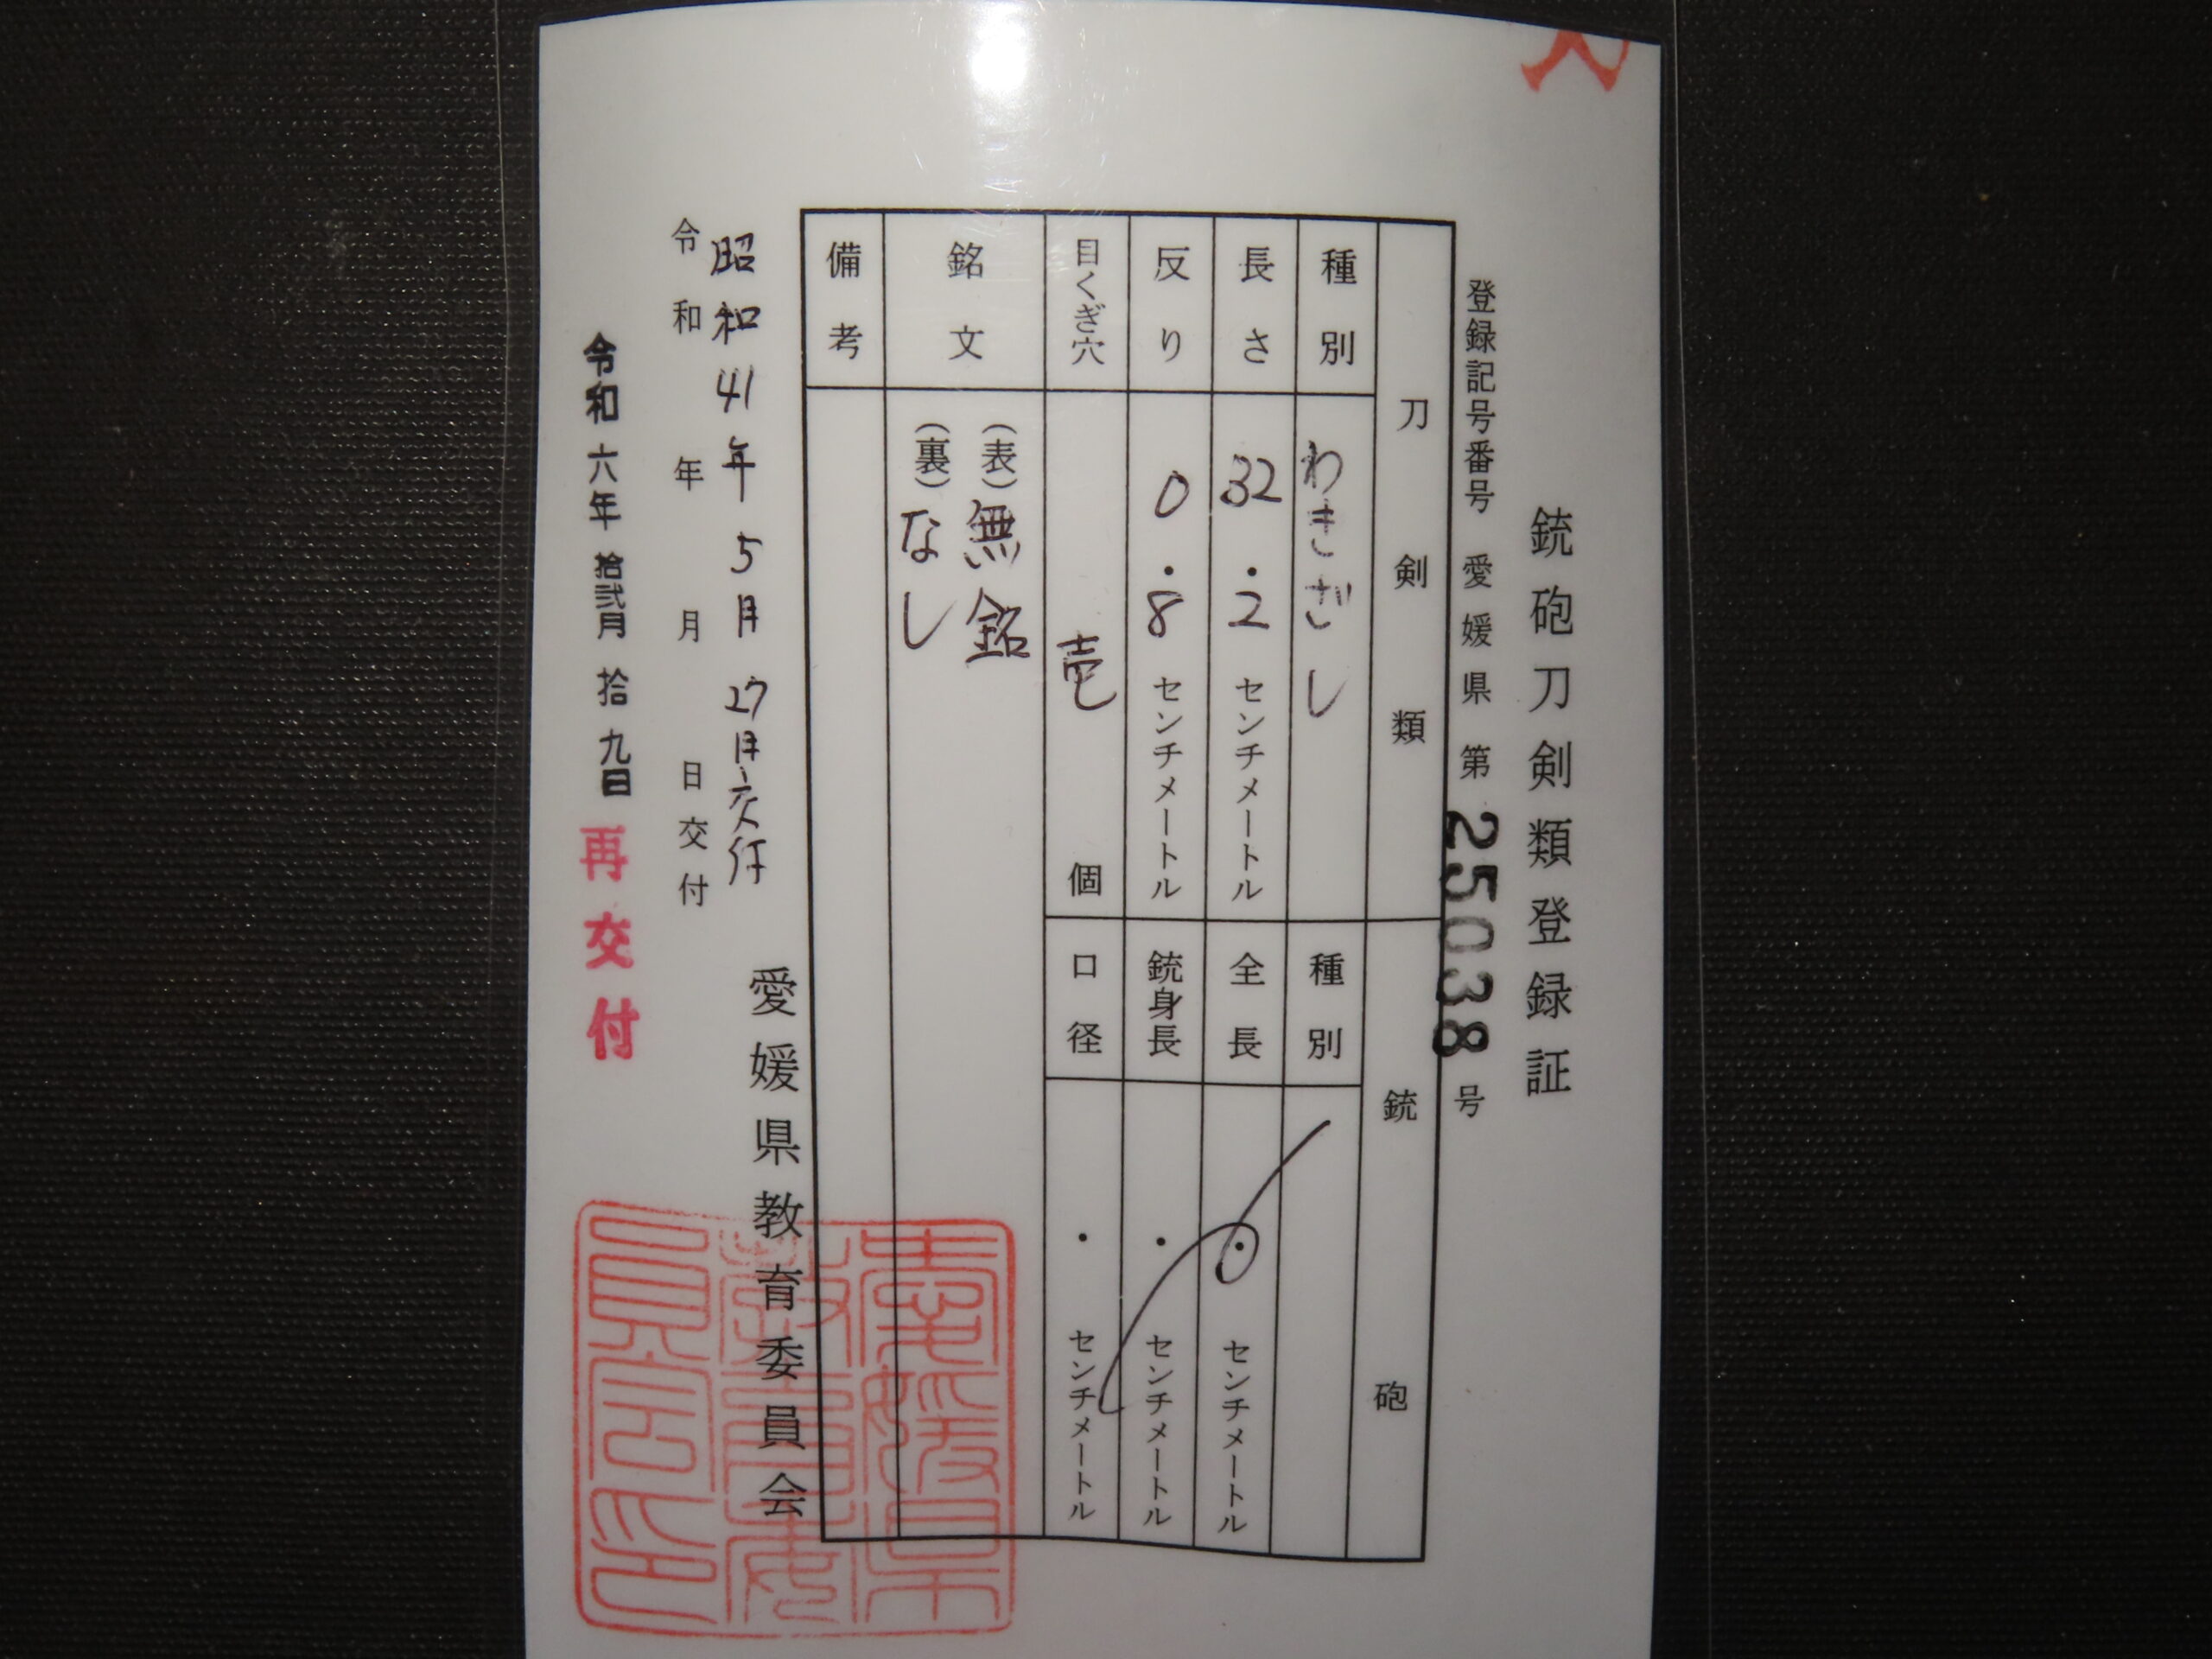 銃砲刀剣類登録証
登録記号番号 愛媛県 第 25038 号
刀剣類
銃砲
種別 わきざし
種別
長さ 32.2 センチメートル
全長 . センチメートル
反り 0.8 センチメートル
銃身長 . センチメートル
目くぎ穴 壱 個
口径 . センチメートル
銘文
(表)無銘
(裏)なし
備考
昭和41年5月27日交付
令和 年 月 日交付
愛媛県教育委員会
令和六年拾弐月拾九日 再交付